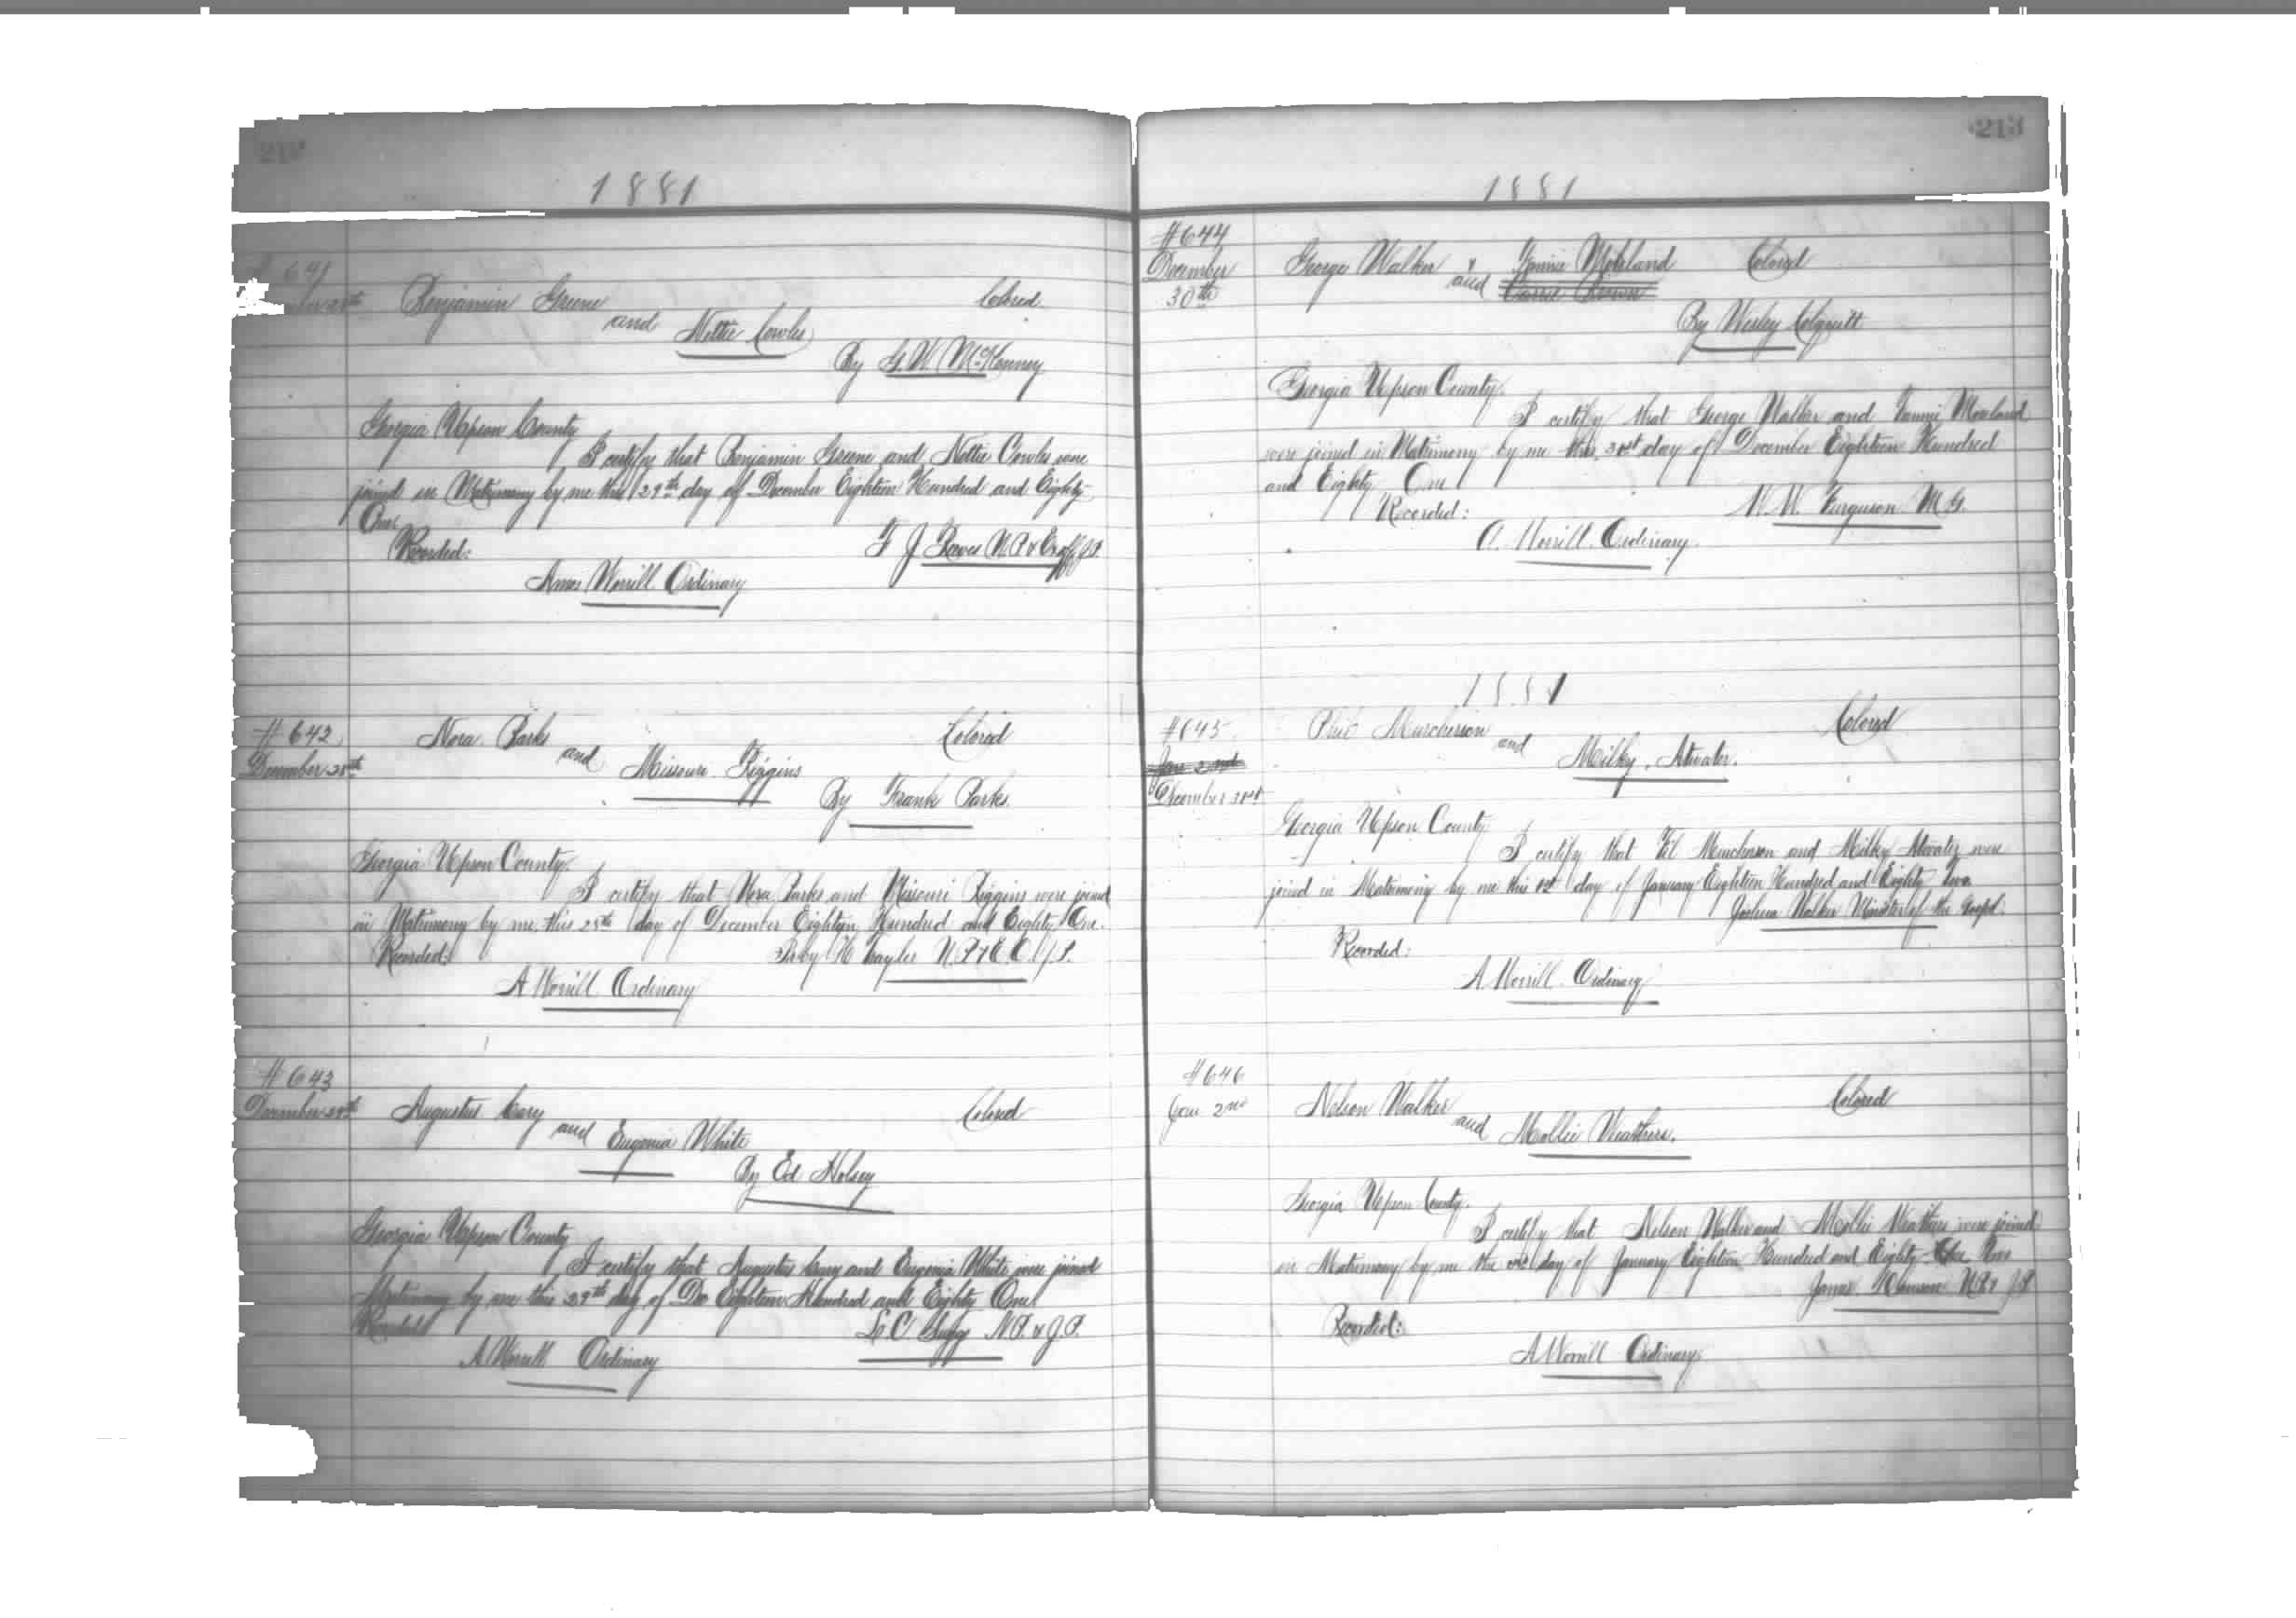 1881
Benjamin Greene
Colored
and Nettie Cowles
By G. W. McKenney
Georgia Upson County
I certify that Benjamin Greene and Nettie Cowles were
joined in Matrimony by me this 29th day of December Eighteen Hundred and Eighty
One
Recorded:
F J Reeves N P & Exoff J P.
Amos Worrill Ordinary
#642
December 28th
Nora Parks
and Missouri Riggins
Colored
By Frank Parks.
Georgia Upson County.
I certify that Nora Parks and Missouri Riggins were joined
in Matrimony by me this 28th day of December Eighteen Hundred and Eighty One.
Recorded:
H Taylor N. P. & E. O. J. P.
A Worrill Ordinary
#643
December 29th
Augustus Cary
and Eugenia White
Colored
By Ed Holsey
Georgia Upson County
I certify that Augustus Cary and Eugenia White were joined
Matrimony by me this 29th day of Dec Eighteen Hundred and Eighty One
Recorded
N. P. & J. P.
A Worrill Ordinary
213
1881
#644
December
30th
George Walker & Fannie Moreland
Colored
and Carrie Brown
By Wesley Colquitt
Georgia Upson County.
I certify that George Walker and Fannie Moreland
were joined in Matrimony by me this 30st day of December Eighteen Hundred
and Eighty One
Recorded:
W. W. Ferguson M. G.
A. Worrill Ordinary.
1881
#645
Jan 2nd
December 31st
Phil Murcherson
and Milky Atwater.
Colored
Georgia Upson County
I certify that Fil Murcherson and Milky Atwater were
joined in Matrimony by me this 1st day of January Eighteen Hundred and Eighty Two
Joshua Walker Minister of the Gospel.
Recorded:
A Worrill Ordinary
#646
Jan 2nd
Nelson Walker
and Mollie Weathers.
Colored
Georgia Upson County.
I certify that Nelson Walker and Mollie Weathers were joined
in Matrimony by me the day of January Eighteen Hundred and Eighty One Two
James N. P. & J. P.
Recorded:
A Worrill Ordinary